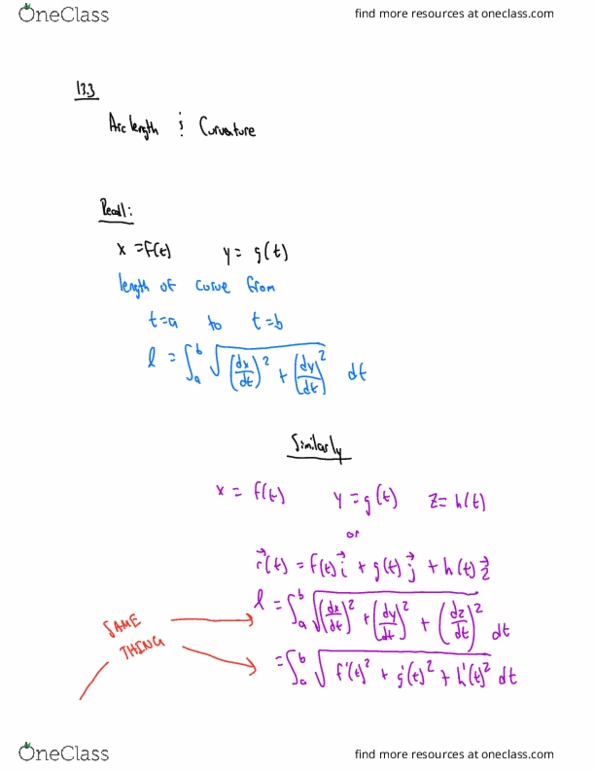 OneClass find more resources at oneclass.com
13.3
Arc length & Curvature
Recall:
x = f(t) y = g(t)
length of curve from
t=a to t=b
l = ∫_a^b √((dx/dt)² + (dy/dt)²) dt
Similarly
x = f(t) y = g(t) z = h(t)
or
r⃗(t) = f(t) i⃗ + g(t) j⃗ + h(t) z⃗
l = ∫_a^b √((dx/dt)² + (dy/dt)² + (dz/dt)²) dt
SAME
THING
= ∫_a^b √(f'(t)² + g'(t)² + h'(t)²) dt
OneClass find more resources at oneclass.com